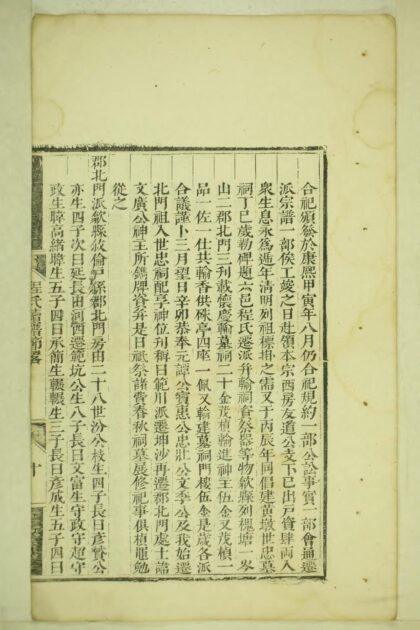 合祀頒發於康熙甲寅年八月仍合祀規約一部公訟事實一部會通遷
派宗譜一部俟工竣之日赴領本宗西房友道公支下已出戶資肆兩入
衆生息永爲遞年清明列祖標掛之需又于丙辰年同倡建黃墩世忠墓
祠丁巳歲勒碑題六邑程氏遷派并輸祠資祭器等物歙縣列槐塘一岑
山二郡北門三刊載懷慶輸墓祠二十金茂楨輸進神王伍金又茂楨一
品一佐一仕共輸香供硃亭四座一佩又輸建墓祠門樓伍金是歲各派
合議謹卜三月望日辛卯恭奉元譚公寶惠公忠壯公文季公及我始遷
北門祖入世忠祠配享神位刋稱日範川派遷坤沙再遷郡北門處士諧
文廣公神主所鐫牌資并是日祇祭諸費春秋祠墓展修祀事俱楨罷勉
從之
郡北門派歙縣效倫戸孫郡北門房由二十八世汾公枝生四子長曰彥贊公
亦生四子次曰延長由河西遷範坑公生八子長曰文富生守政守超守
政生暐高緒暐生五子四曰承簡生輾輾生三子長曰彥成生五子四曰
程氏譜 略